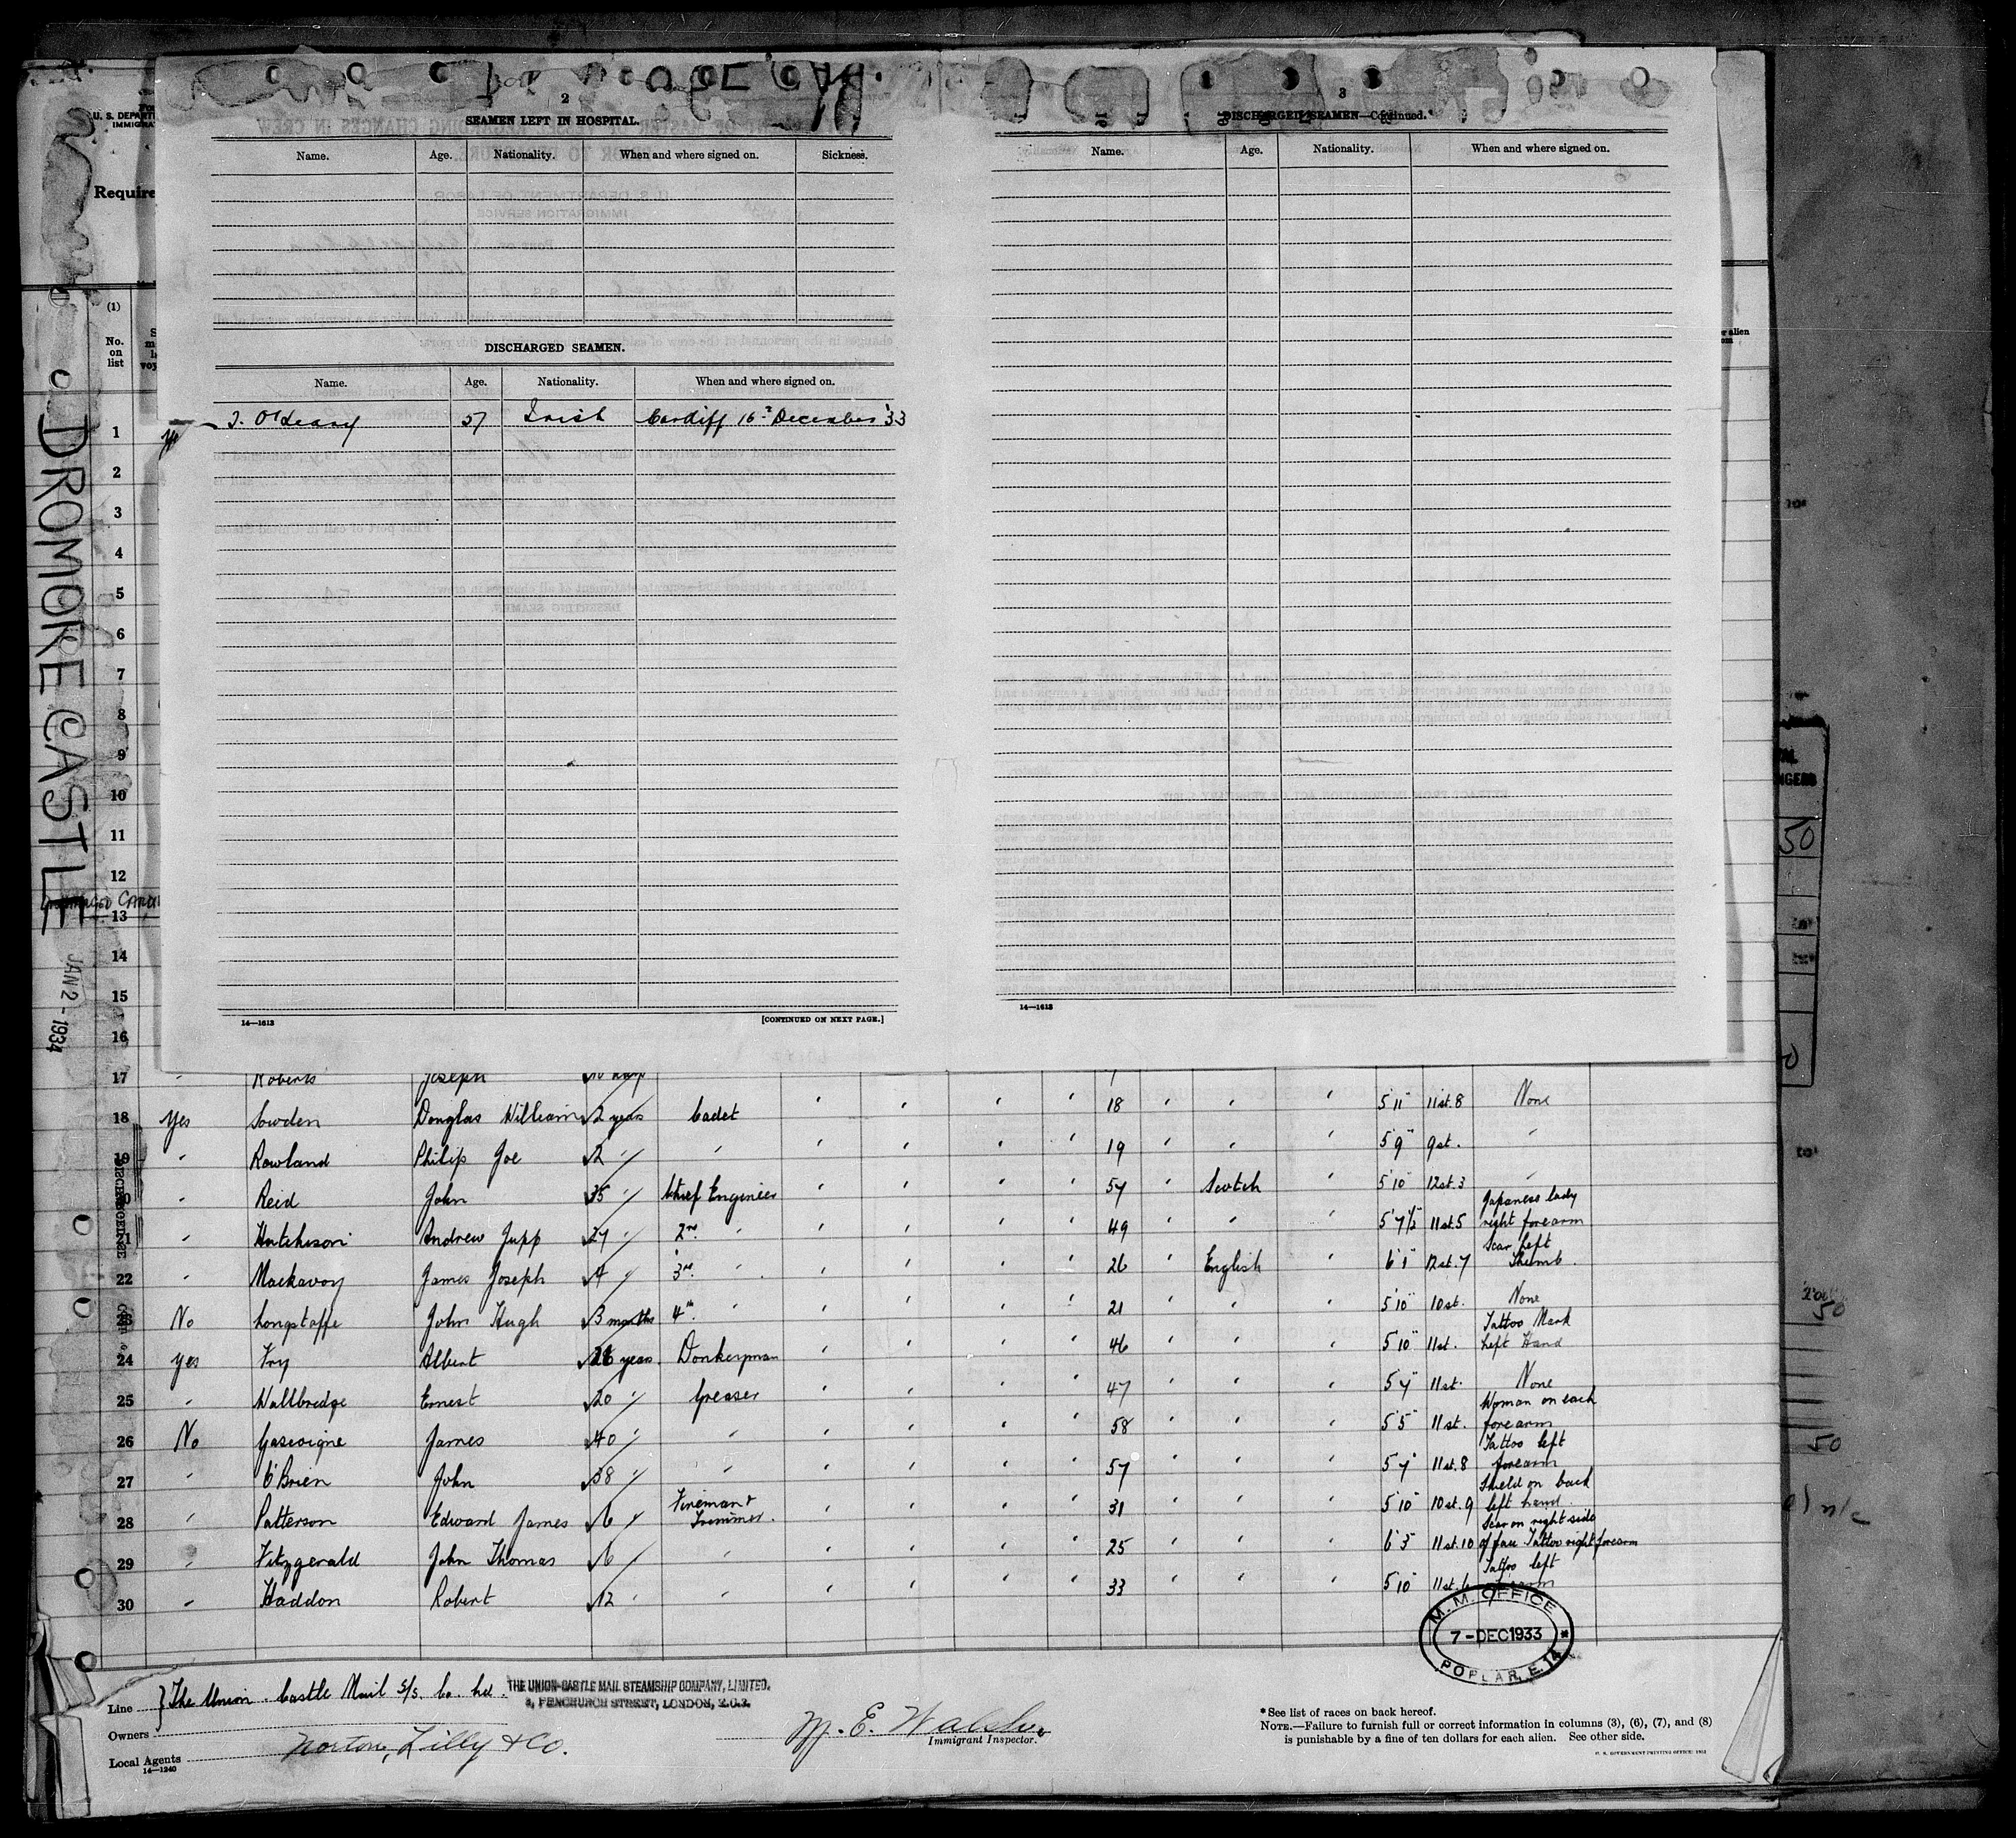 2
SEAMEN LEFT IN HOSPITAL.
Name. Age. Nationality. When and where signed on. Sickness.
DISCHARGED SEAMEN.
Name. Age. Nationality. When and where signed on.
J. O'Leary 57 Irish Cardiff 16th December '33
14—1613
[CONTINUED ON NEXT PAGE.]
3
DISCHARGED SEAMEN—Continued.
Name. Age. Nationality. When and where signed on.
14—1613
U. S. DEPART
IMMIGRA
Require
(1)
No. on list
DROMORE CASTLE
JAN 2 - 1934
1
2
3
4
5
6
7
8
9
10
11
12
13
14
15
16
17 " Roberts Joseph
18 Yes Sowden Douglas William 2 years Cadet " " " " 18 " " " 5'11" 11st.8 None
19 " Rowland Philip Joe 2 " " " " " " 19 " " " 5'9" 9st. "
20 " Reid John 35 " Chief Engineer " " " " 57 " Scotch " 5'10" 12st.3 "
21 " Hutchison Andrew Jupp 27 " 2nd. " " " " " 49 " " " 5'7½" 11st.5 Japanese lady right forearm
22 " Mackavoy James Joseph 4 " 3rd. " " " " " 26 " English " 6'1" 12st.7 Scar left thumb.
23 No Longstaffe John Hugh 3 months 4th. " " " " " 21 " " " 5'10" 10st. None
24 Yes Fry Albert years. Donkeyman " " " " 46 " " " 5'10" 11st. Tattoo Mark Left Hand
25 " Wallbridge Ernest 20 " Greaser " " " " 47 " " " 5'7" 11st. None
26 No Gascoigne James 40 " " " " " " 58 " " " 5'5" 11st. Woman on each forearm
27 " O'Brien John 38 " " " " " " 57 " " " 5'7" 11st.8 Tattoo left forearm
28 " Patterson Edward James 6 " Fireman & Trimmer. " " " " 31 " " " 5'10" 10st.9 Shield on back left hand.
29 " Fitzgerald John Thomas 6 " " " " " " 25 " " " 6'3" 11st.10 Scar on right side of face Tattoo right forearm
30 " Haddon Robert 12 " " " " " " 33 " " " 5'10" 11st.6 Tattoo left forearm
M. M. OFFICE
7-DEC1933
POPLAR, E.14
Line } The Union-Castle Mail S/S. Co. Ld. THE UNION-CASTLE MAIL STEAMSHIP COMPANY, LIMITED.
3, FENCHURCH STREET, LONDON, E.C.3.
Owners
Local Agents Norton, Lilly & Co.
14—1240
M. E. Walshe
Immigrant Inspector.
*See list of races on back hereof.
NOTE.—Failure to furnish full or correct information in columns (3), (6), (7), and (8)
is punishable by a fine of ten dollars for each alien. See other side.
U. S. GOVERNMENT PRINTING OFFICE:
50
50
50
n/c